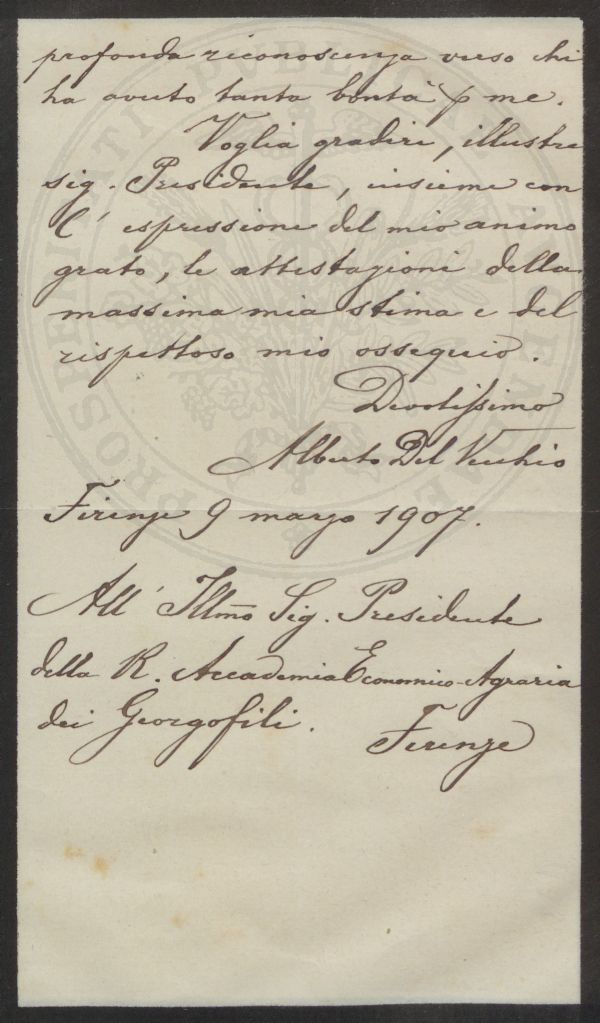 profonda riconoscenza verso chi
ha avuto tanta bontà p me.
Voglia gradire, illustre
sig. Presidente, insieme con
l' espressione del mio animo
grato, le attestazioni della
massima mia stima e del
rispettoso mio ossequio.
Devotissimo
Alberto Del Vecchio
Firenze 9 marzo 1907.
All' Illmo Sig. Presidente
della R. Accademia Economico-Agraria
dei Georgofili.
Firenze
PROSPERITATI PUBLICAE AUGENDAE